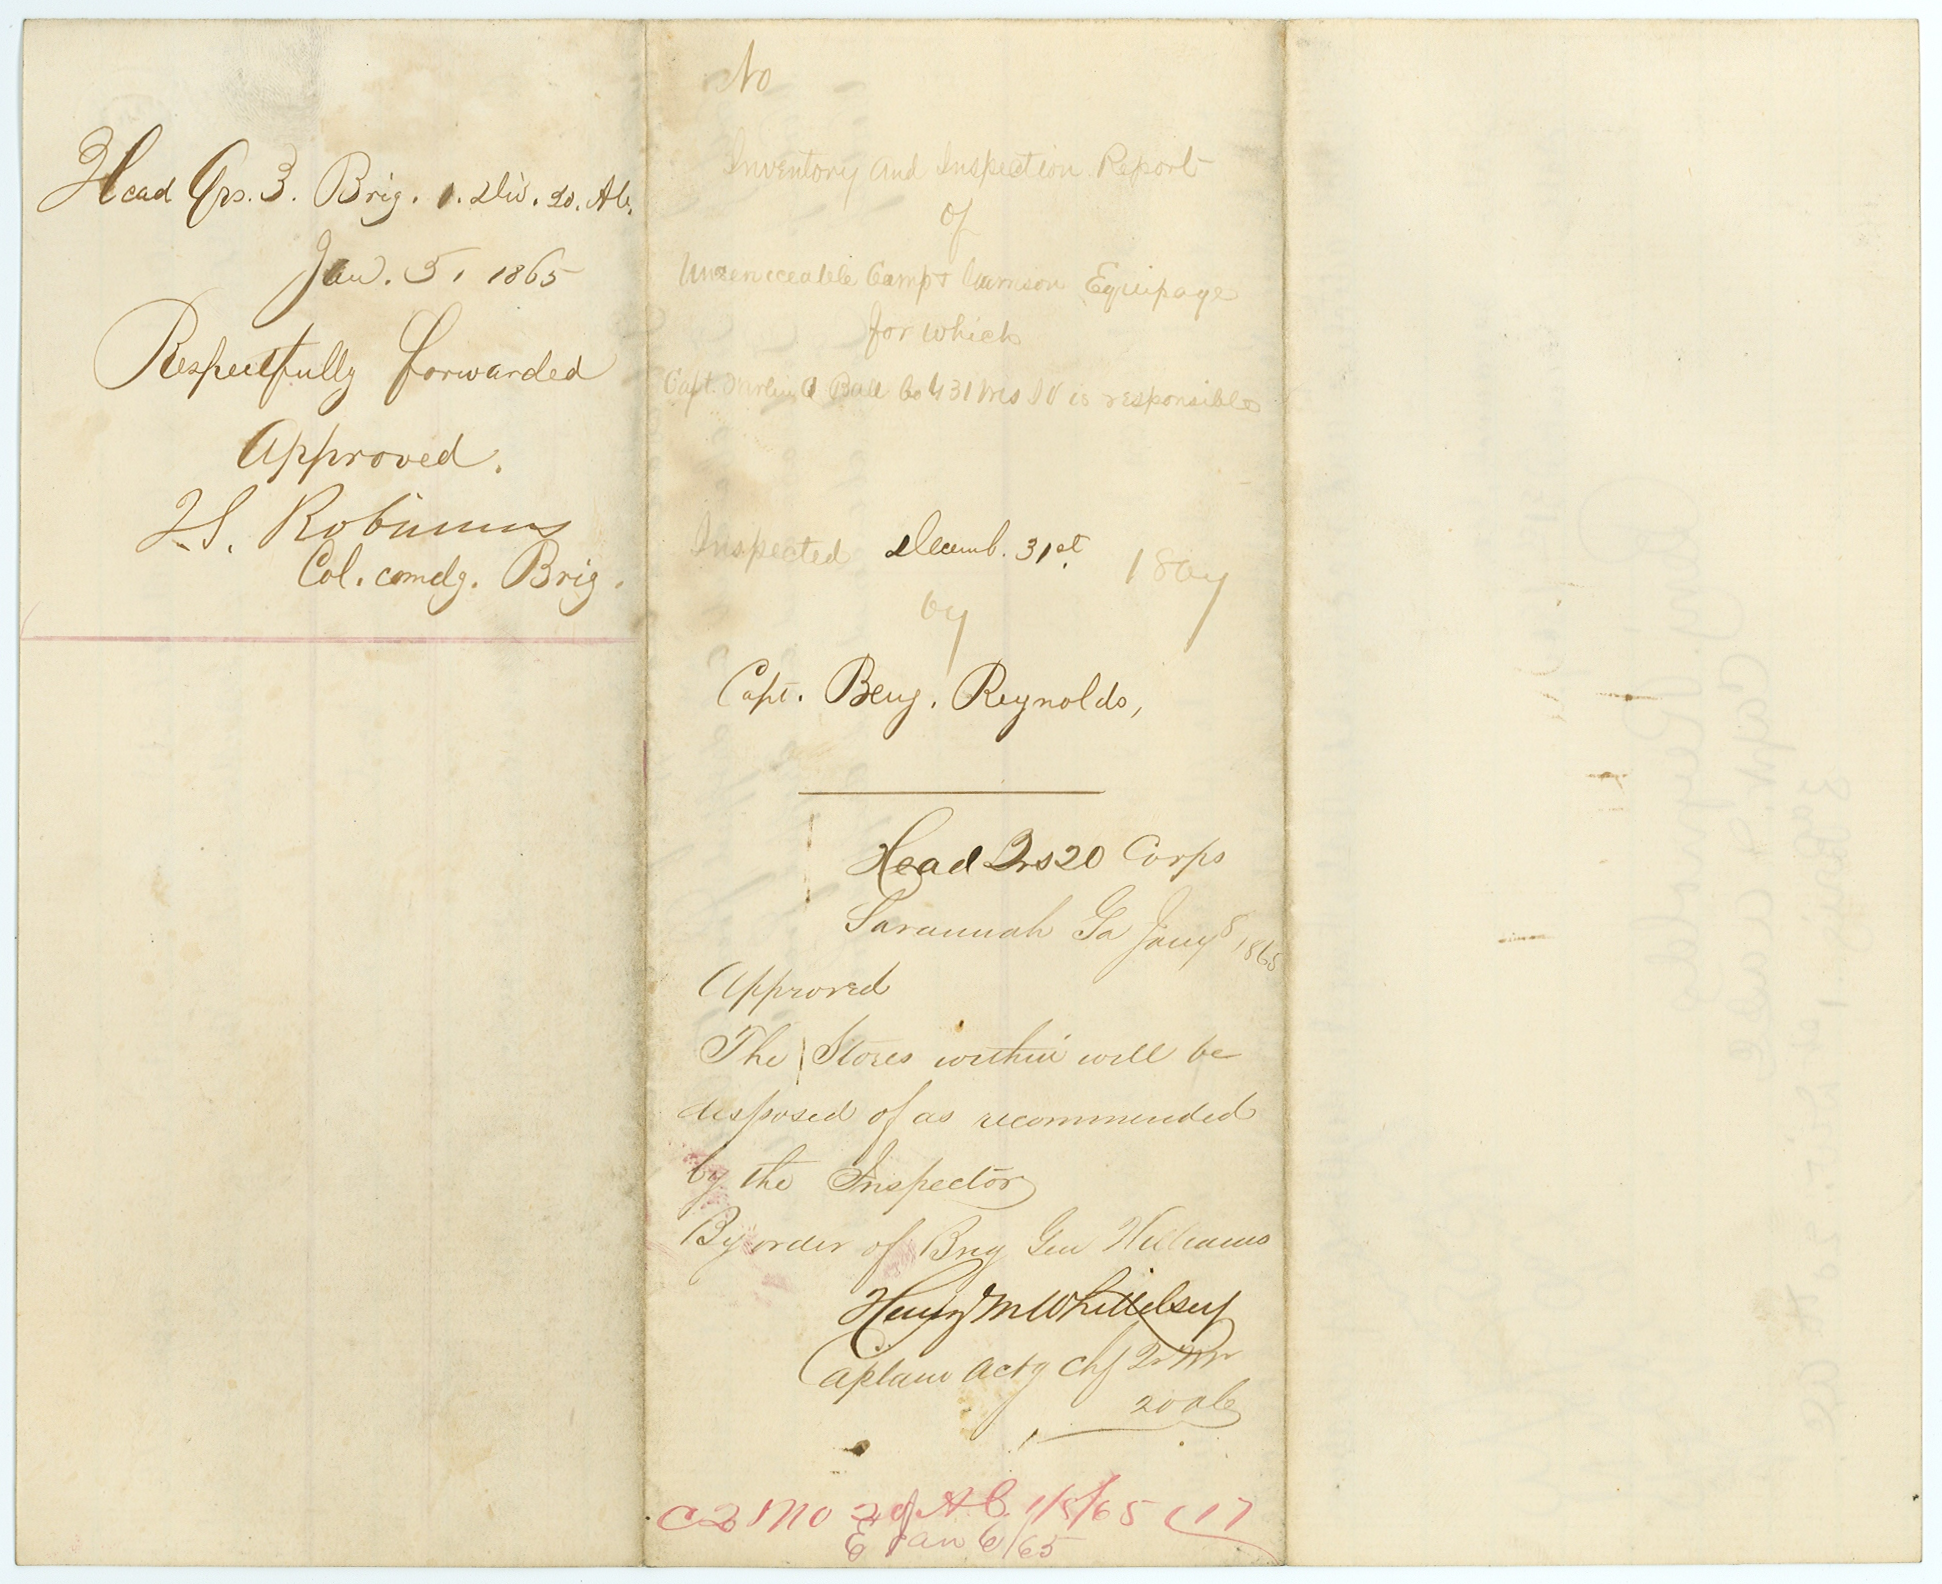 Head Qrs. 3. Brig. 1. Div. 20. A.C.
Jan. 5, 1865
Respectfully forwarded
Approved.
J.S. Robinson
Col. comdg. Brig.
No
Inventory and Inspection Report
of
Unserviceable Camp & Garrison Equipage
for which
Capt. Ball Co 31 Wis is responsible
Inspected Decemb. 31st. 1864
by
Capt. Benj. Reynolds,
Head Qrs 20 Corps
Savannah Ga Jany 8 1865
Approved
The Stores within will be
disposed of as recommended
by the Inspector
By order of Brig Gen Williams
Henry M Whittelsey
Captain Actg Chf Qr Mr
20 A C
20 A.C. 1/5/65 (17
E Jan 6/65